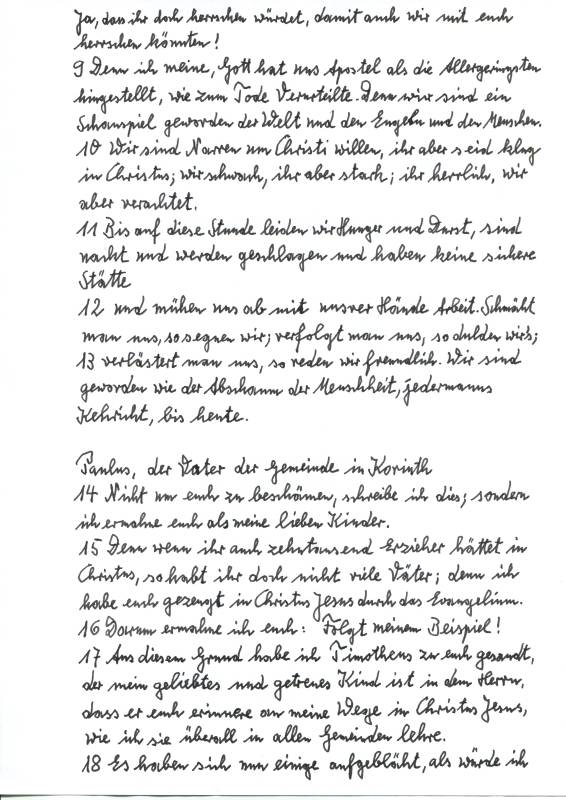 Ja, dass ihr doch herrschen würdet, damit auch wir mit euch
herrschen könnten!
9 Denn ich meine, Gott hat uns Apostel als die Allergeringsten
hingestellt, wie zum Tode Verurteilte. Denn wir sind ein
Schauspiel geworden der Welt und den Engeln und den Menschen.
10 Wir sind Narren um Christi willen, ihr aber seid klug
in Christus; wir schwach, ihr aber stark; ihr herrlich, wir
aber verachtet.
11 Bis auf diese Stunde leiden wir Hunger und Durst, sind
nackt und werden geschlagen und haben keine sichere
Stätte
12 und mühen uns ab mit unsrer Hände Arbeit. Schmäht
man uns, so segnen wir; verfolgt man uns, so dulden wir's;
13 verlästert man uns, so reden wir freundlich. Wir sind
geworden wie der Abschaum der Menschheit, jedermanns
Kehricht, bis heute.
Paulus, der Vater der Gemeinde in Korinth
14 Nicht um euch zu beschämen, schreibe ich dies; sondern
ich ermahne euch als meine lieben Kinder.
15 Denn wenn ihr auch zehntausend Erzieher hättet in
Christus, so habt ihr doch nicht viele Väter; denn ich
habe euch gezeugt in Christus Jesus durch das Evangelium.
16 Darum ermahne ich euch: Folgt meinem Beispiel!
17 Aus diesem Grund habe ich Timotheus zu euch gesandt,
der mein geliebtes und getreues Kind ist in dem Herrn,
dass er euch erinnere an meine Wege in Christus Jesus,
wie ich sie überall in allen Gemeinden lehre.
18 Es haben sich nun einige aufgebläht, als würde ich